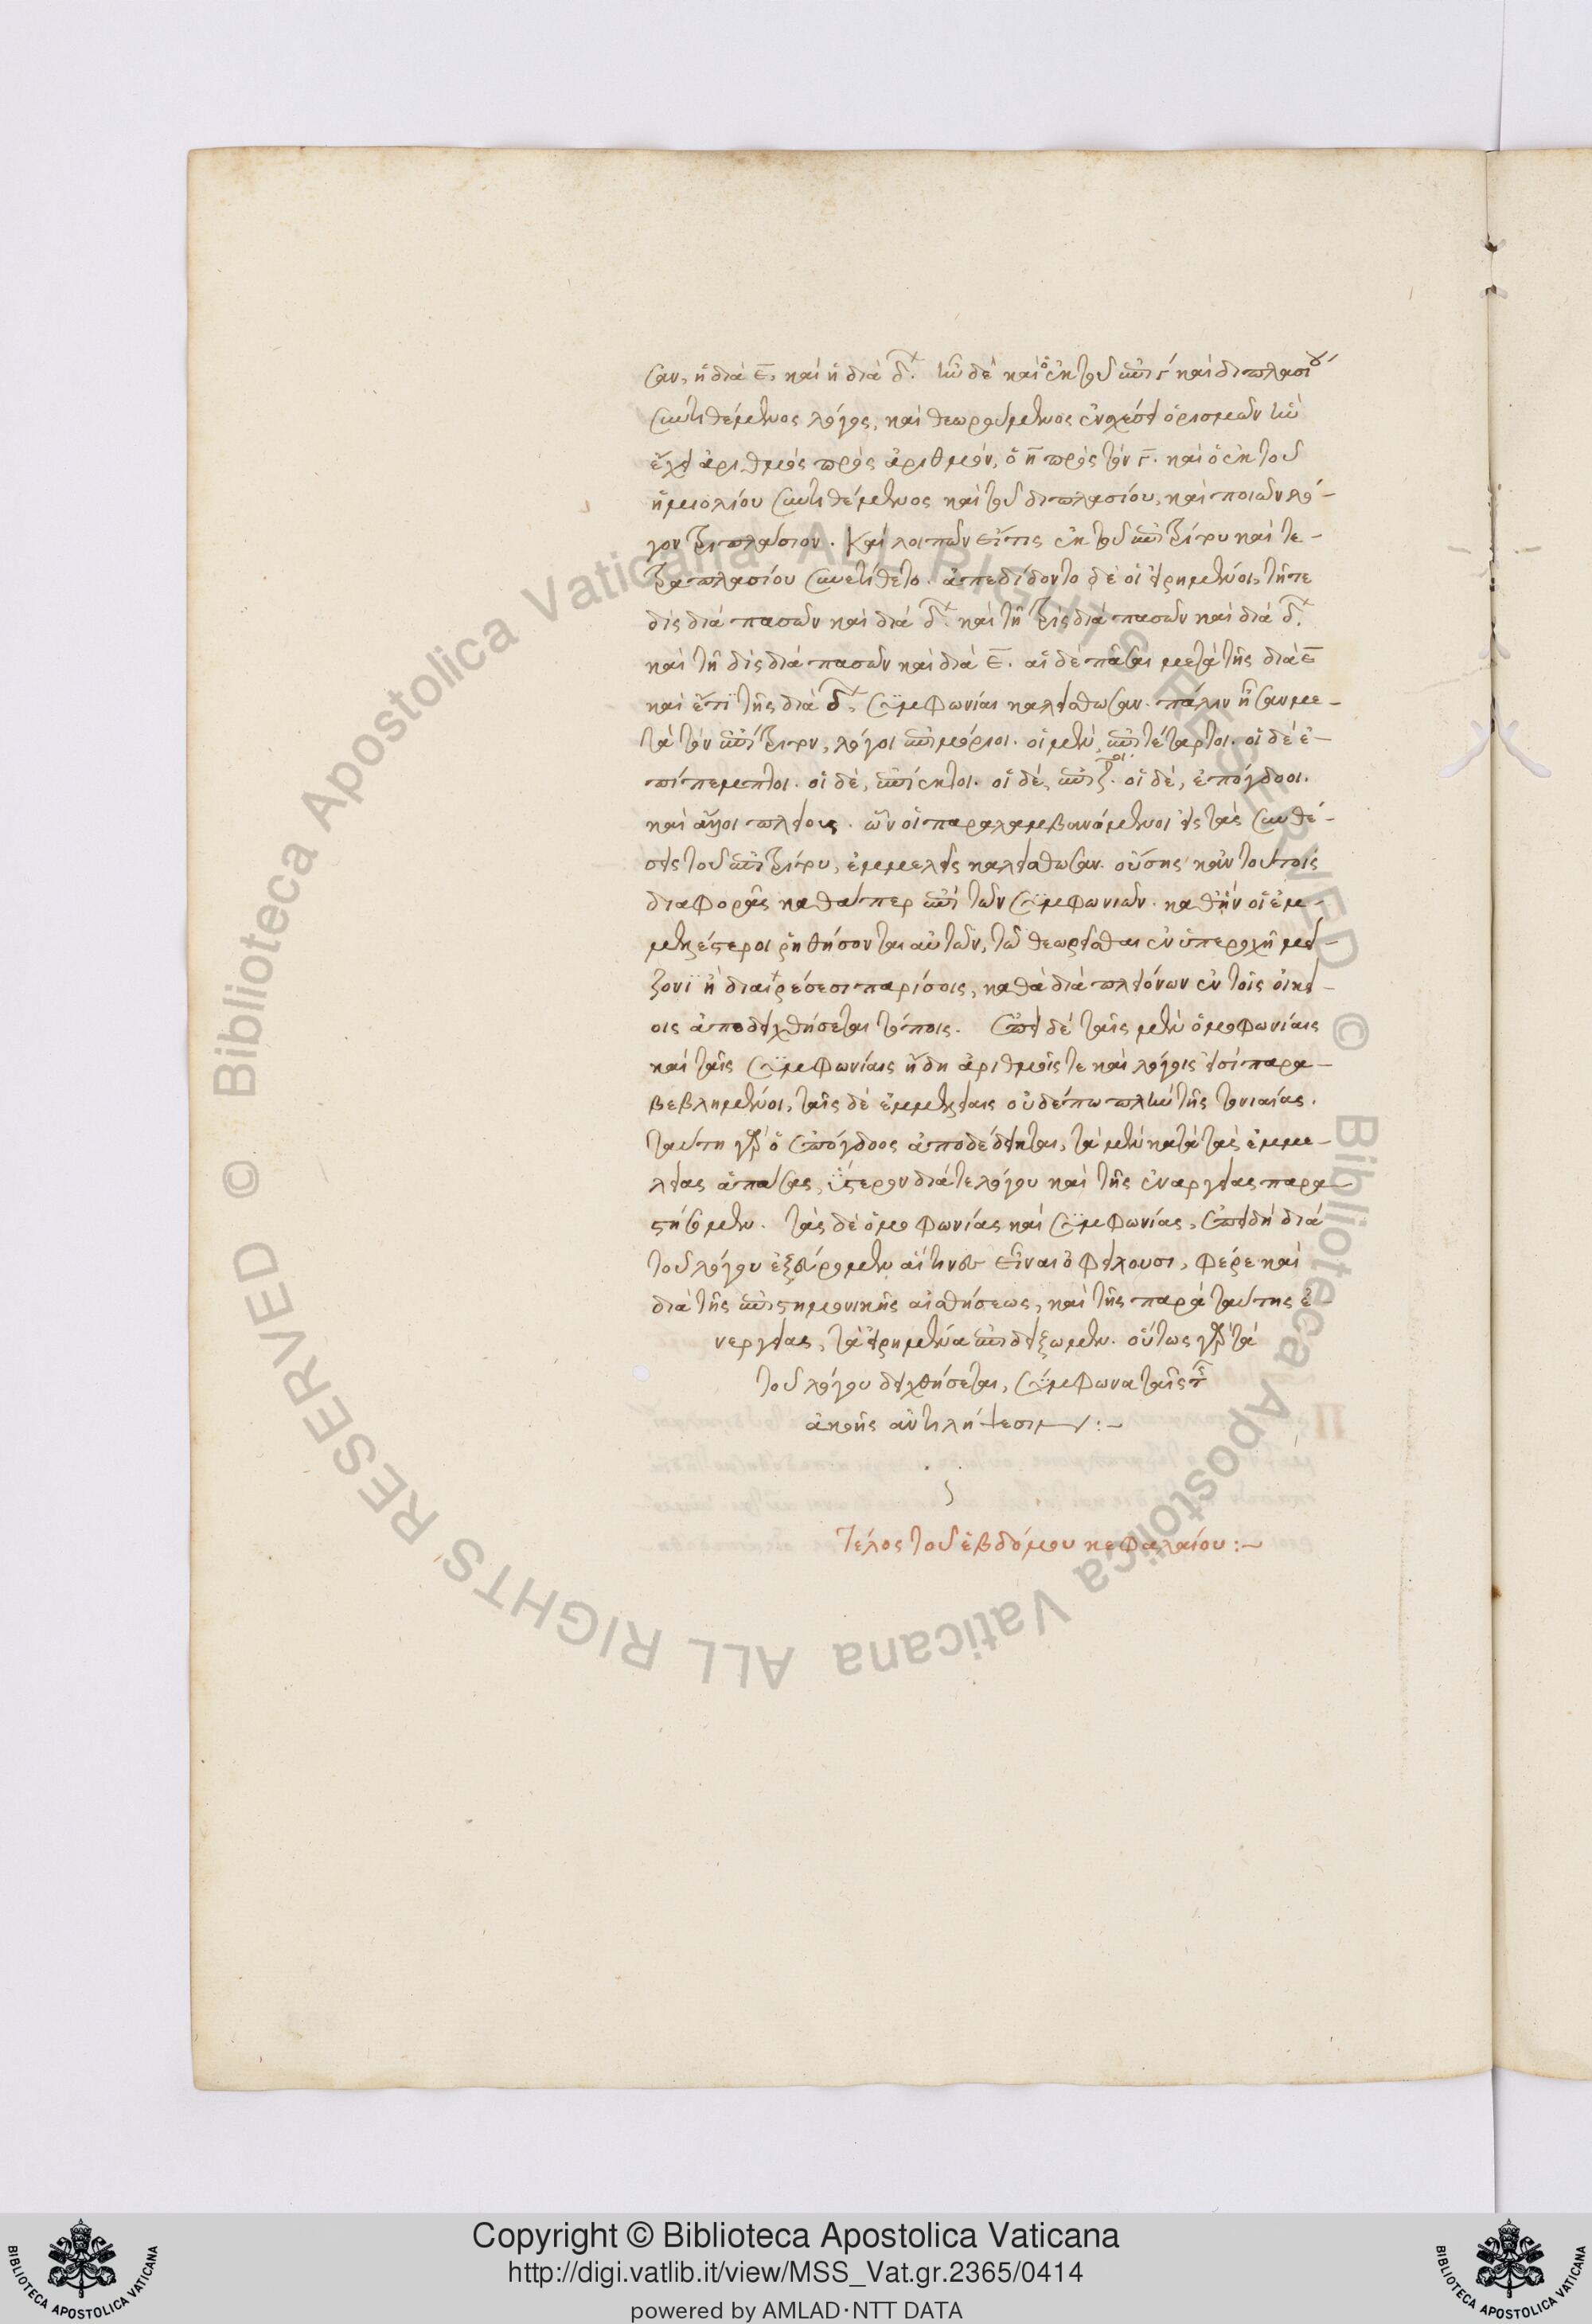 σαν, ἡ διὰ ε̅, καὶ ἡ διὰ δ̅. ἦν δὲ καὶ ὁ ἐκ τοῦ ἐπὶ γ´ καὶ διπλασίου
συντιθέμενος λόγος, καὶ θεωρούμενος ἐν σχέσει ὁρισμῶν ἣν
ἔχει ἀριθμὸς πρὸς ἀριθμόν, ὁ η̅ πρὸς τὸν γ̅. καὶ ὁ ἐκ τοῦ
ἡμιολίου συντιθέμενος καὶ τοῦ διπλασίου, καὶ ποιῶν λό-
γον τριπλάσιον. Καὶ λοιπῶν εἴ τις ἐκ τοῦ ἐπιτρίτου καὶ τε-
τραπλασίου συνετίθετο. ἀπεδίδοντο δὲ οἱ εἰρημένοι, τῇ τε
δὶς διὰ πασῶν καὶ διὰ δ̅. καὶ τῇ τρὶς διὰ πασῶν καὶ διὰ δ̅.
καὶ τῇ δὶς διὰ πασῶν καὶ διὰ ε̅. αἱ δὲ πᾶσαι μετὰ τῆς διὰ ε̅
καὶ ἔτι τῆς διὰ δ̅, συμφωνίαι καλείσθωσαν. πάλιν ἦσαν με-
τὰ τὸν ἐπίτριτον, λόγοι ἐπιμόριοι. οἱ μὲν, ἐπιτέταρτοι. οἱ δὲ ἐ-
πίπεμπτοι. οἱ δὲ, ἐπίεκτοι. οἱ δὲ, ἐπὶ ζ̅οι. οἱ δὲ, ἐπόγδοοι.
καὶ ἄλλοι πλείους. ὧν οἱ παραλαμβανόμενοι εἰς τὰς συνθέ-
σεις τοῦ ἐπιτρίτου, ἐμμελεῖς καλείσθωσαν. οὔσης κἀν τούτοις
διαφορᾶς καθάπερ ἐπὶ τῶν συμφωνιῶν. καθ' ἣν οἱ ἐμ-
μελέστεροι ῥηθήσονται αὐτῶν, τῷ θεωρεῖσθαι ἐν ὑπεροχῇ μεί-
ζονι ἢ διαιρέσεσι παρίσοις, καθὰ διὰ πλειόνων ἐν τοῖς οἰκεί-
οις ἀποδειχθήσεται τόποις. Ἐπεὶ δὲ ταῖς μὲν ὁμοφωνίαις
καὶ ταῖς συμφωνίαις ἤδη ἀριθμοῖς τε καὶ λόγοις εἰσὶ παρα-
βεβλημένοι, ταῖς δὲ ἐμμελείαις οὐδέπω πλὴν τῆς τονιαίας.
ταύτῃ γὰρ ὁ ἐπόγδοος ἀποδέδεικται, τὰ μὲν κατὰ τὰς ἐμμε-
λείας ἁπάσας, ὕστερον διά τε λόγου καὶ τῆς ἐναργείας παρα-
στήσομεν. τὰς δὲ ὁμοφωνίας καὶ συμφωνίας, ἐπειδὴ διὰ
τοῦ λόγου ἐξεύρομεν αἵτινες εἶναι ὀφείλουσι, φέρε καὶ
διὰ τῆς ἐπιστημονικῆς αἰσθήσεως, καὶ τῆς παρὰ ταύτης ἐ-
νεργείας, τὰ εἰρημένα ἐπιδείξωμεν. οὕτως γὰρ τὰ
τοῦ λόγου δειχθήσεται, σύμφωνα ταῖς τῆς
ἀκοῆς ἀντιλήψεσιν:~
Τέλος τοῦ ἑβδόμου κεφαλαίου:~
Copyright © Biblioteca Apostolica Vaticana
http://digi.vatlib.it/view/MSS_Vat.gr.2365/0414
powered by AMLAD·NTT DATA